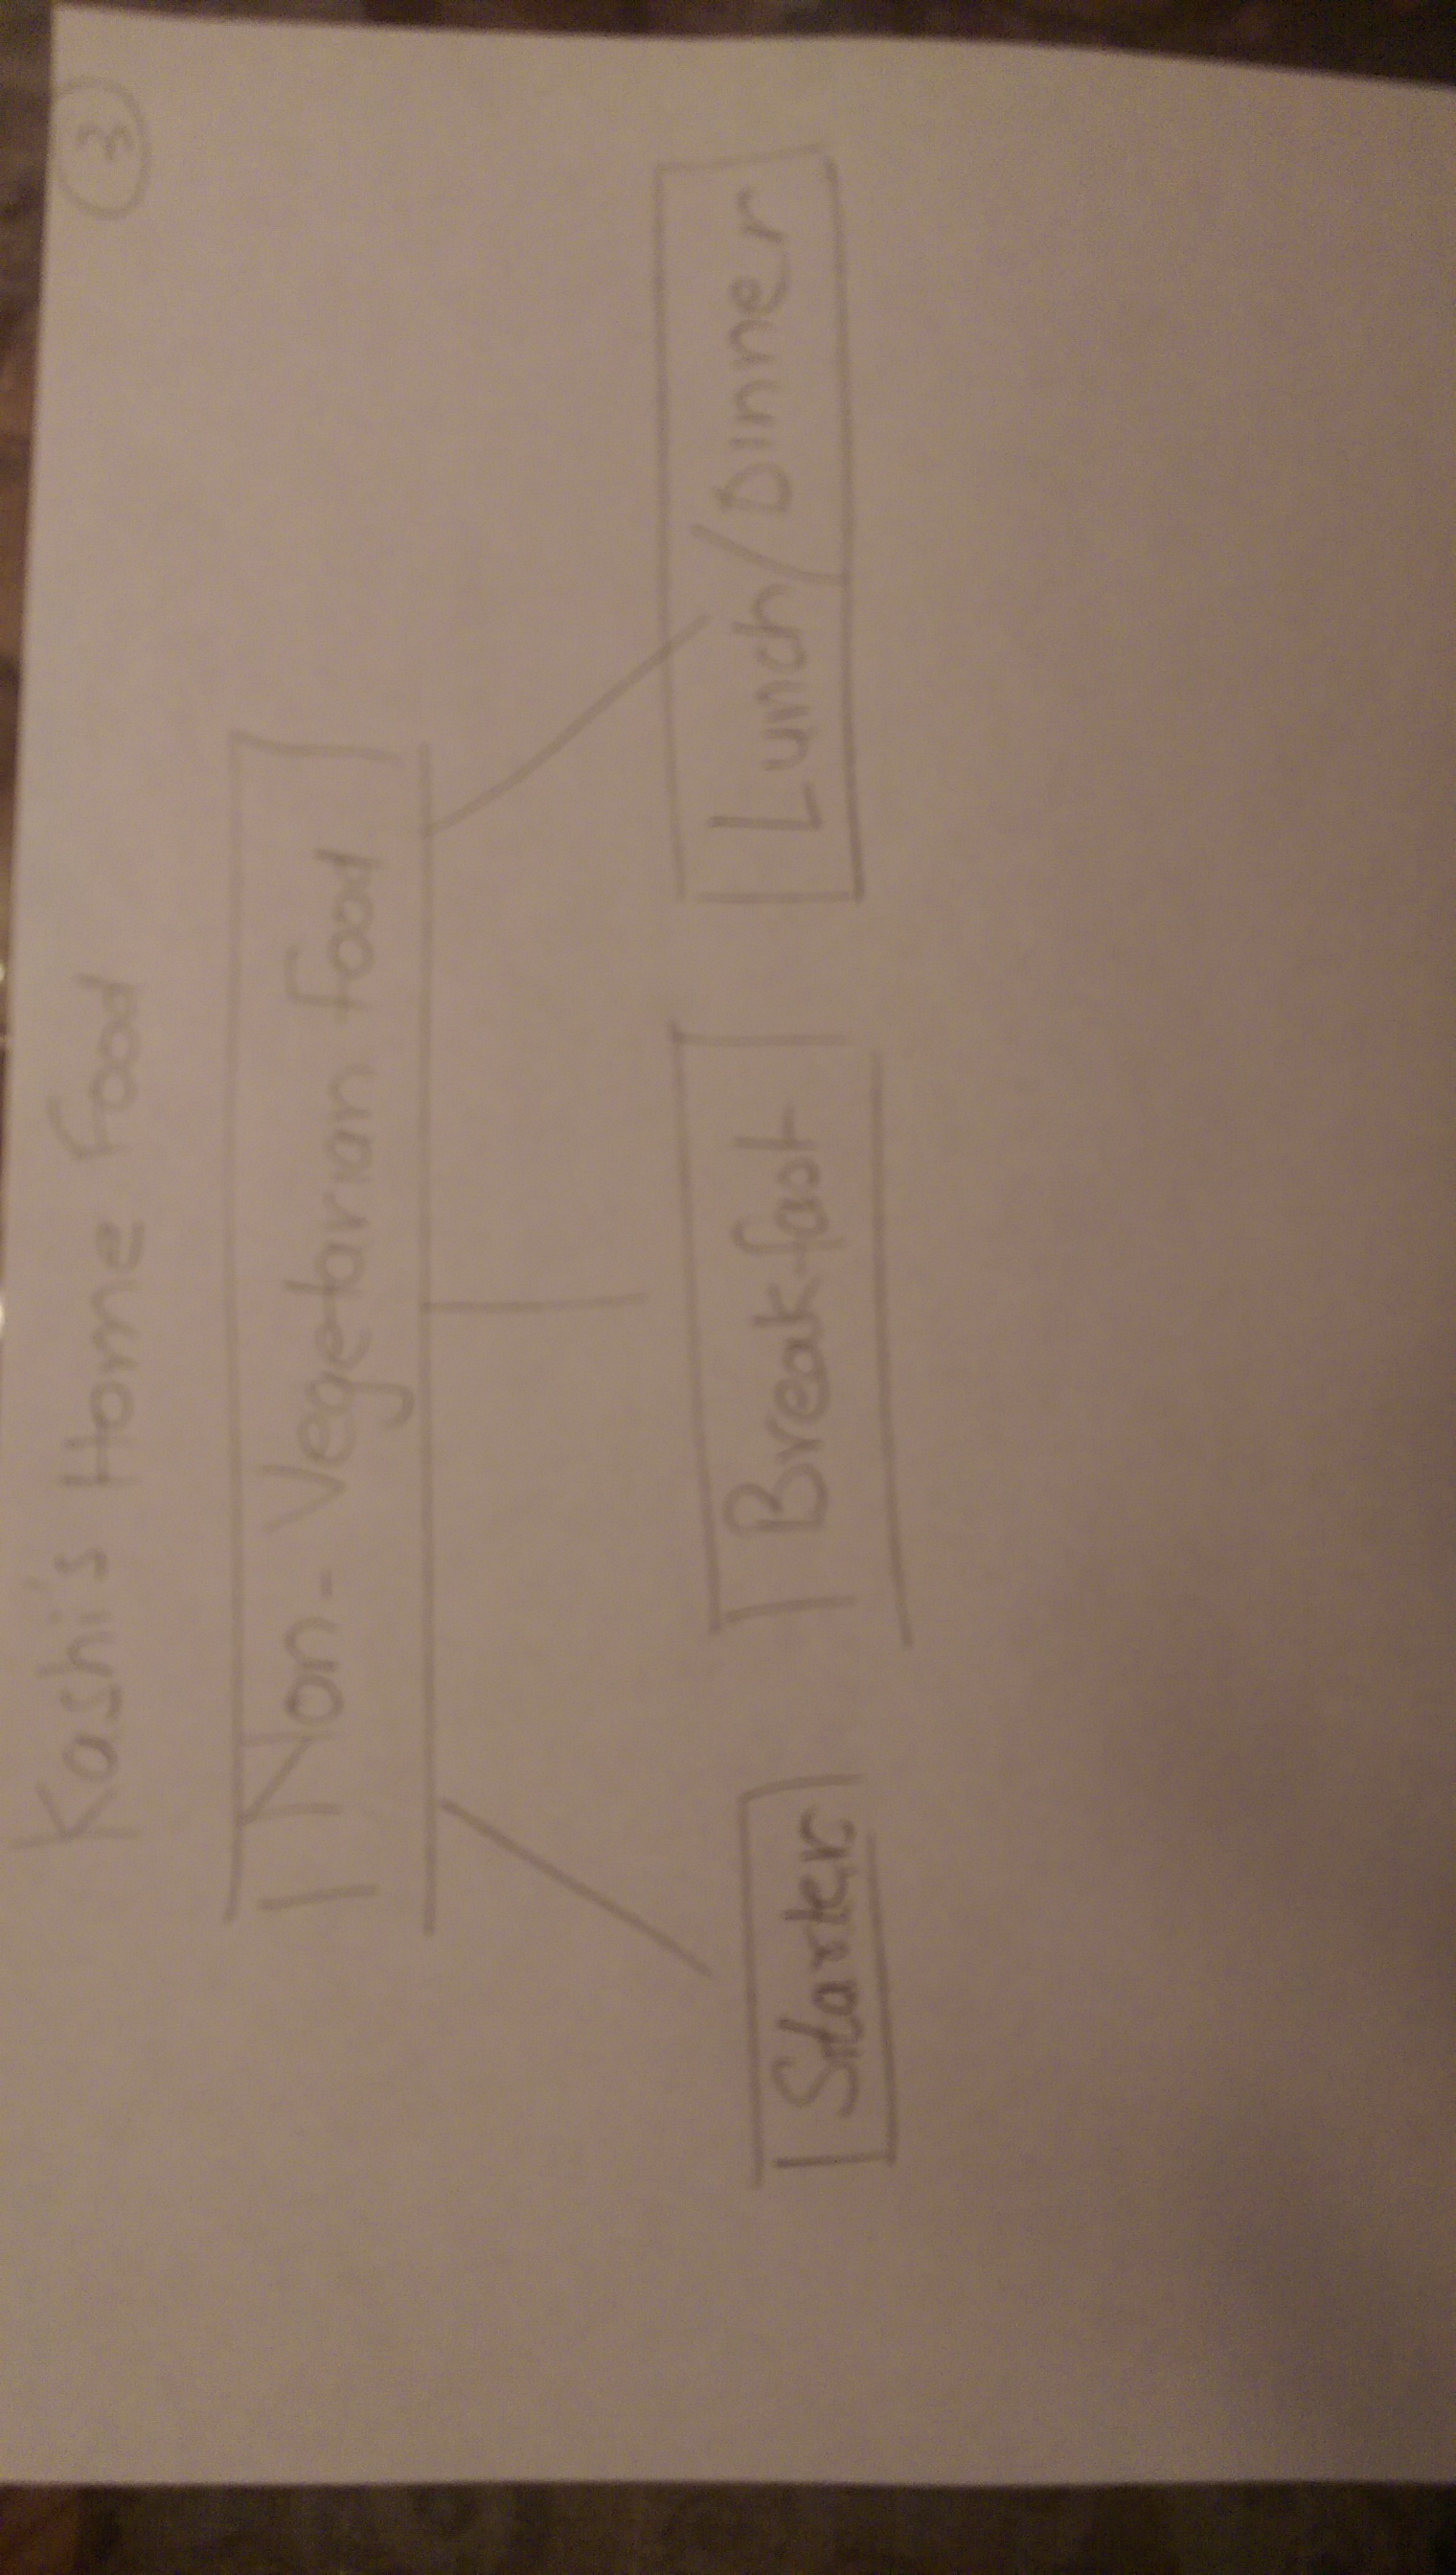 3
Kashi's Home Food
Non-Vegetarian food
Starter
Breakfast
Lunch/Dinner